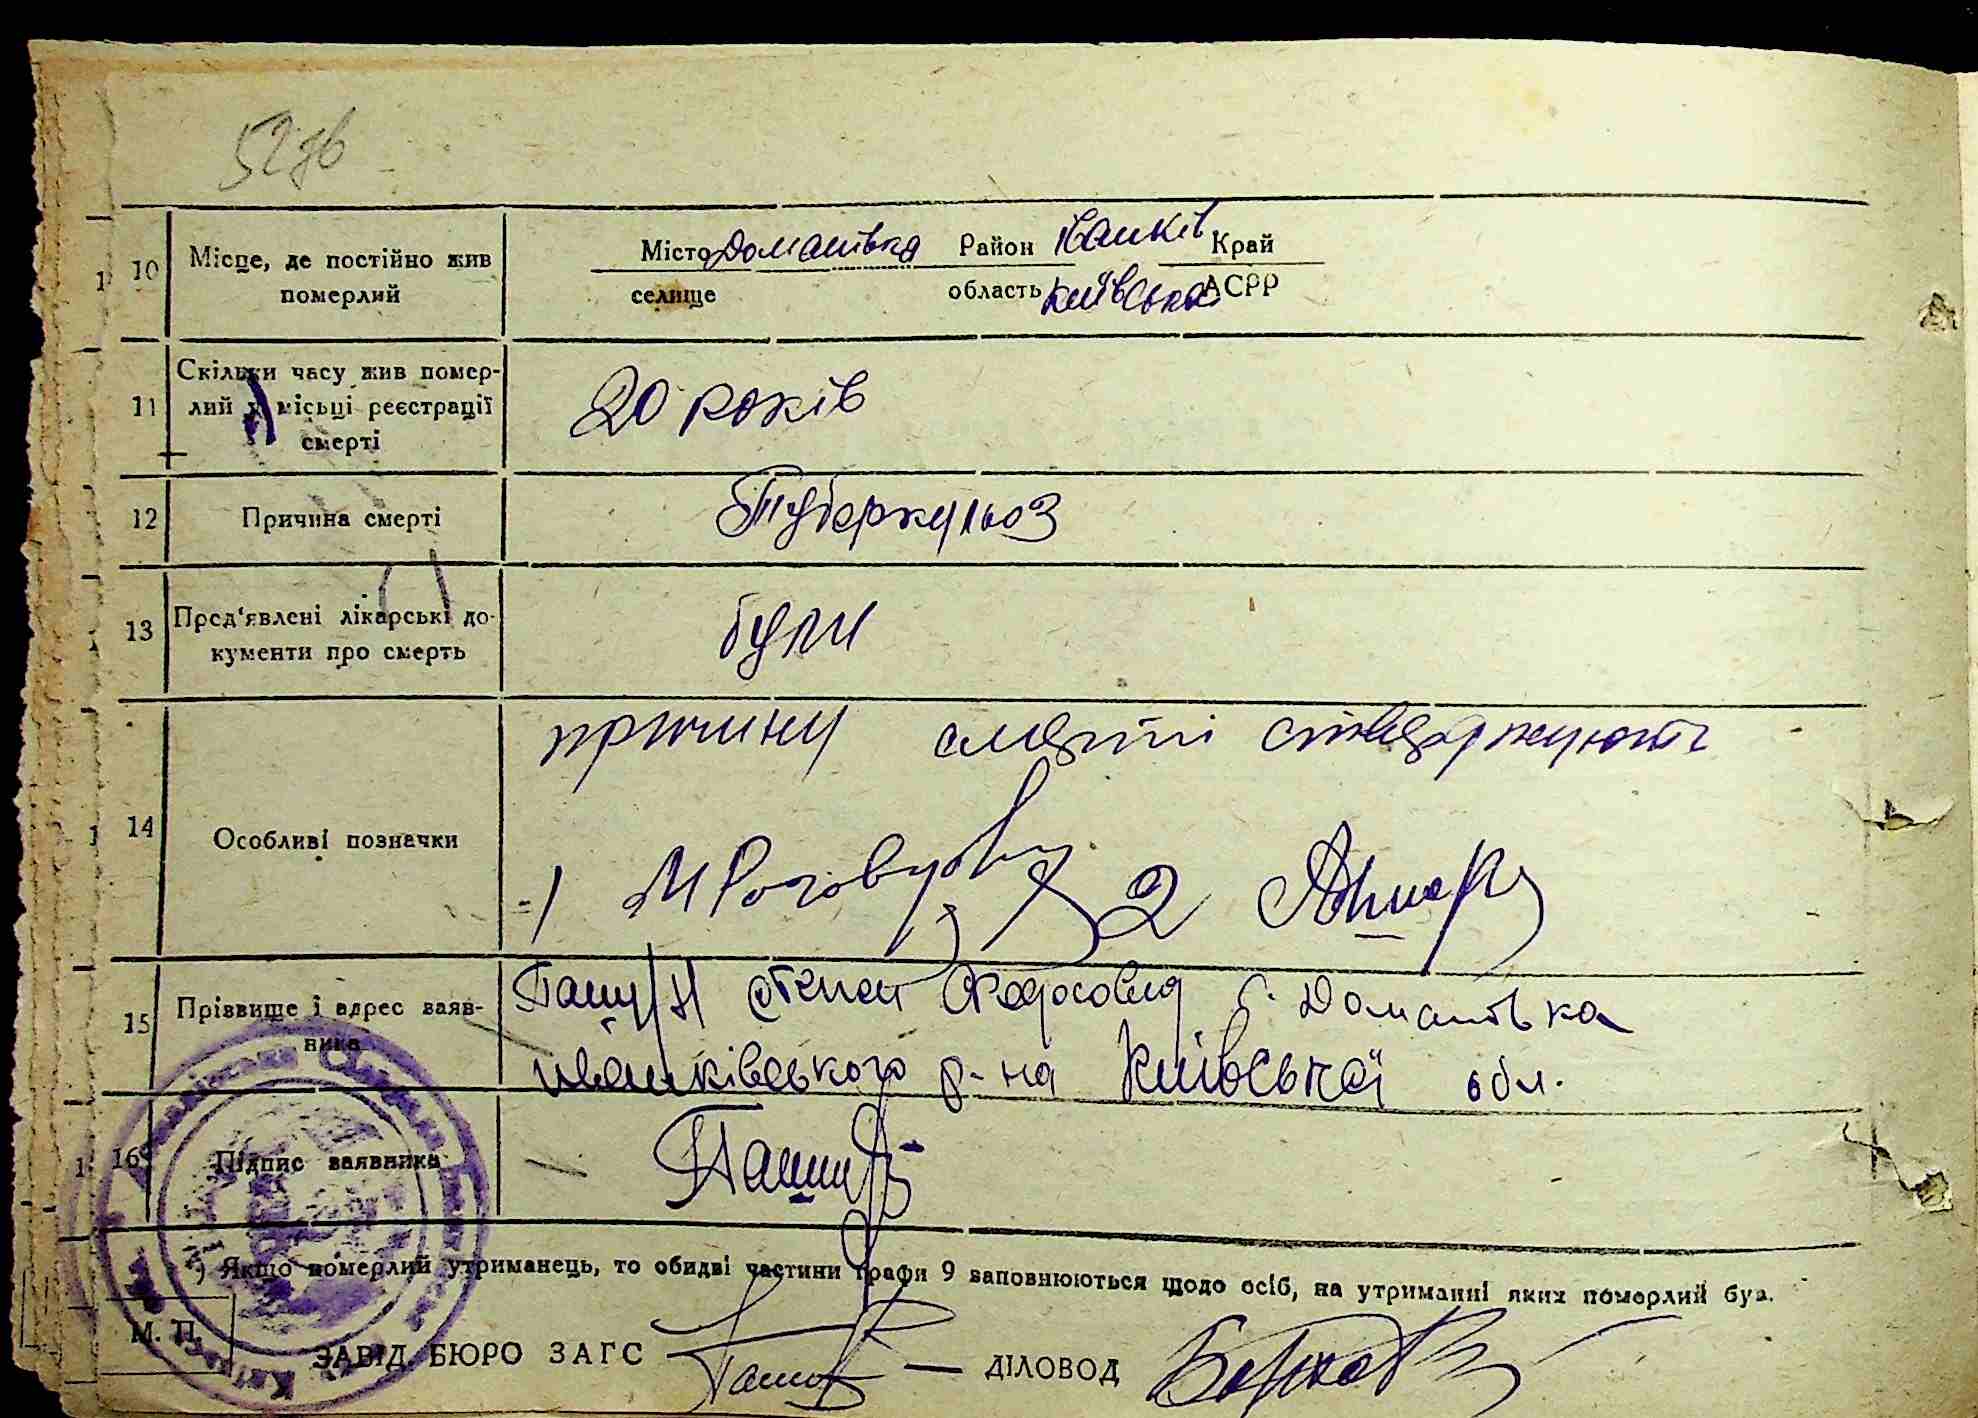 52зв
10 Місце, де постійно жив померлий Місто Доманівка Район Іванків Край
селище область Київська АСРР
11 Скільки часу жив помер-
лий у місьці реєстрації 20 років
смерті
12 Причина смерті Туберкульоз
13 Пред'явлені лікарські до-
кументи про смерть були
причину смерті стверджують
14 Особливі позначки
1 2
15 Прізвище і адрес заяв-
ника
Степан Федосович с. Доманівка
іванківського р-на Київської обл.
16 Підпис заявника
) Якщо померлий утриманець, то обидві частини графи 9 заповнюються щодо осіб, на утриманні яких померлий був.
М. П.
ЗАВІД. БЮРО ЗАГС ДІЛОВОД